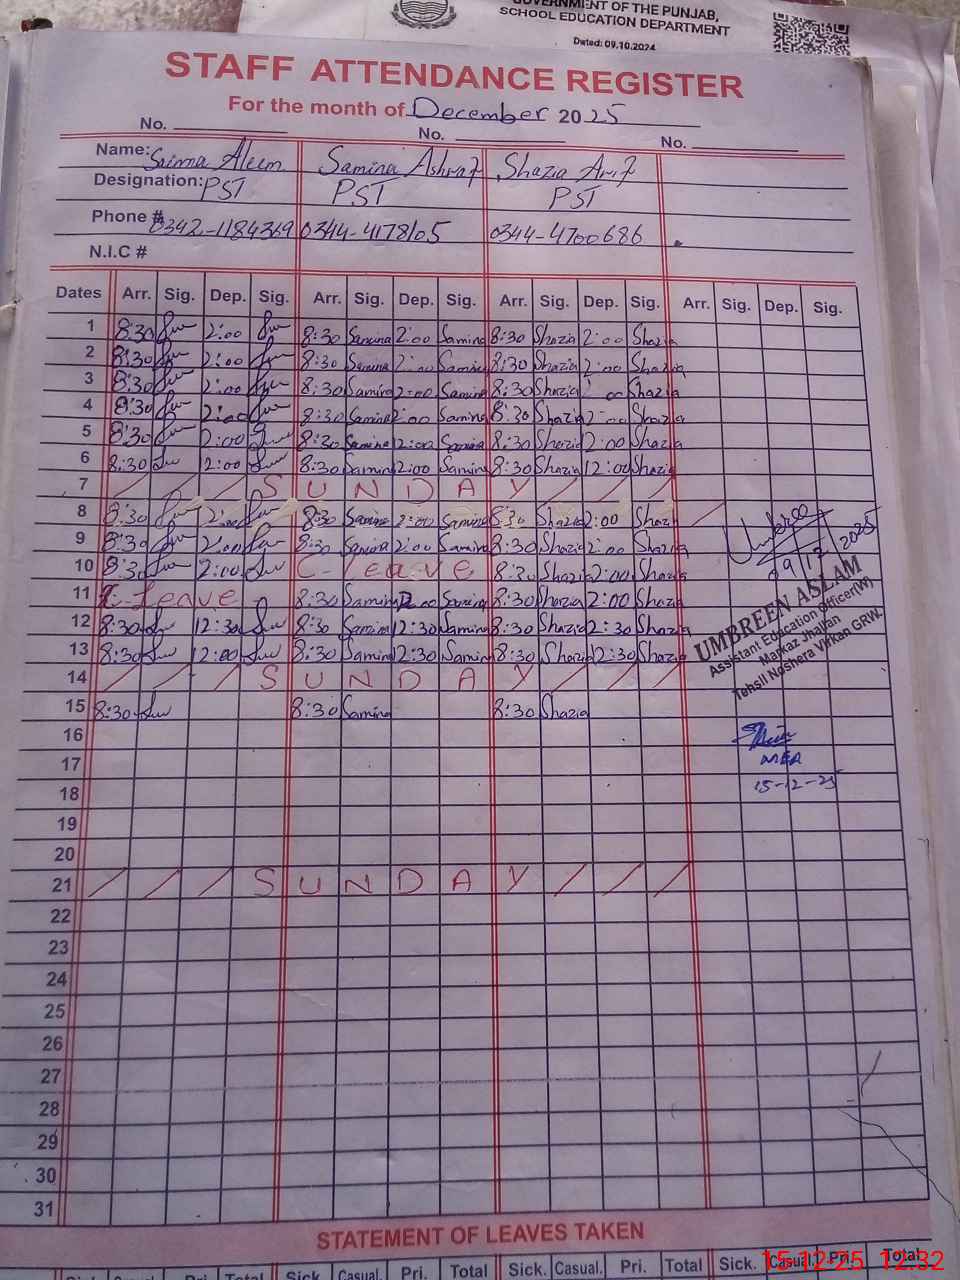 GOVERNMENT OF THE PUNJAB,
SCHOOL EDUCATION DEPARTMENT
Dated: 09.10.2024
STAFF ATTENDANCE REGISTER
For the month of December 2025
No. No. No.
Name: Saima Aleem Samina Ashraf Shazia Arif
Designation: PST PST PST
Phone # 0342-1184369 0344-4178105 0344-4700686
N.I.C #
Dates Arr. Sig. Dep. Sig. Arr. Sig. Dep. Sig. Arr. Sig. Dep. Sig. Arr. Sig. Dep. Sig.
1 8:30 2:00 8:30 Samina 2:00 Samina 8:30 Shazia 2:00 Shazia
2 8:30 2:00 8:30 Samina 2:00 Samina 8:30 Shazia 2:00 Shazia
3 8:30 2:00 8:30 Samina 2:00 Samina 8:30 Shazia 2:00 Shazia
4 8:30 2:00 8:30 Samina 2:00 Samina 8:30 Shazia 2:00 Shazia
5 8:30 2:00 8:30 Samina 2:00 Samina 8:30 Shazia 2:00 Shazia
6 8:30 2:00 8:30 Samina 2:00 Samina 8:30 Shazia 12:00 Shazia
7 / / / S U N D A Y / / /
8 8:30 2:00 8:30 Samina 2:00 Samina 8:30 Shazia 2:00 Shazia
9 8:30 2:00 8:30 Samina 2:00 Samina 8:30 Shazia 2:00 Shazia
10 8:30 2:00 C-leave 8:30 Shazia 2:00 Shazia
11 C-Leave 8:30 Samina 2:00 Samina 8:30 Shazia 2:00 Shazia
12 8:30 12:30 8:30 Samina 12:30 Samina 8:30 Shazia 2:30 Shazia
13 8:30 12:00 8:30 Samina 12:30 Samina 8:30 Shazia 12:30 Shazia
14 / / / S U N D A Y / / /
15 8:30 8:30 Samina 8:30 Shazia
16
17
18
19
20
21 / / / S U N D A Y / / /
22
23
24
25
26
27
28
29
30
31
Umbreen
09/12/2025
UMBREEN ASLAM
Assistant Education Officer(W)
Markaz Jhallan
Tehsil Noshera Virkan GRW.
MEA
15-12-25
STATEMENT OF LEAVES TAKEN
Sick. Casual. Pri. Total Sick. Casual. Pri. Total Sick. Casual. Pri. Total Sick. Casual. Pri. Total
15-12-25 12:32